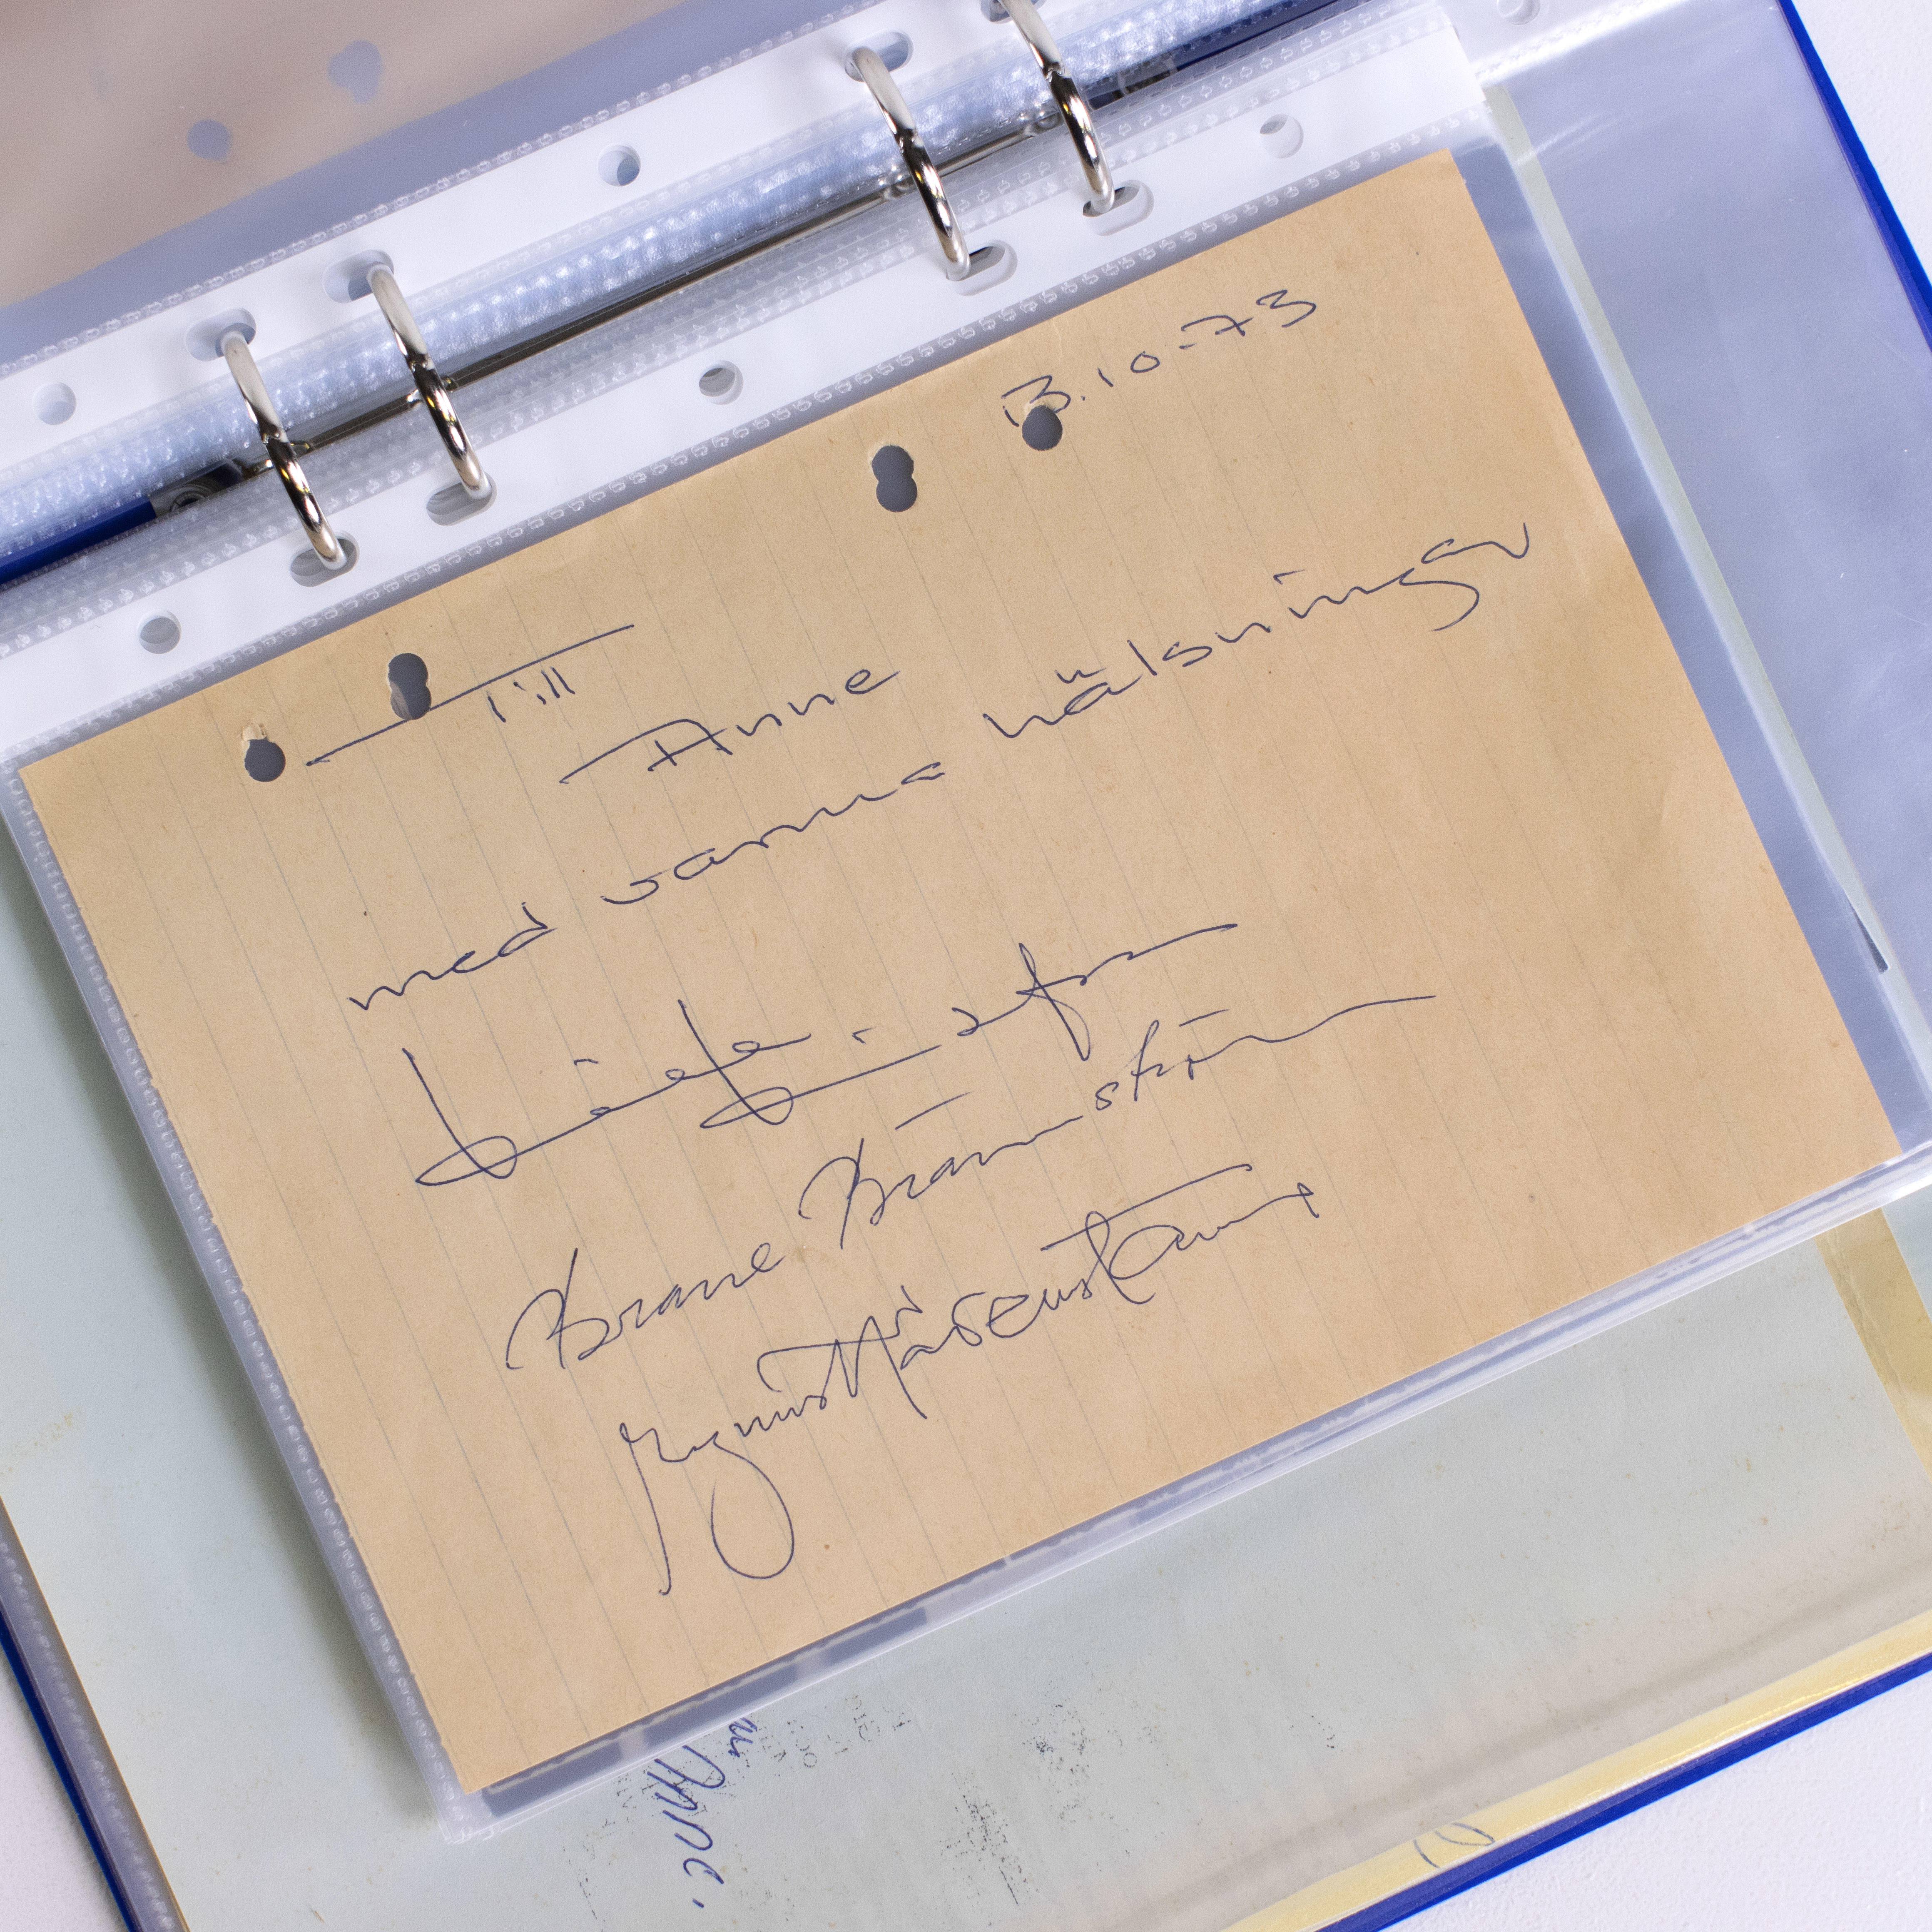 13.10-73
Till
Anne
med varma hälsningar
Brasse Brännström
Magnus Härenstam
Anne.